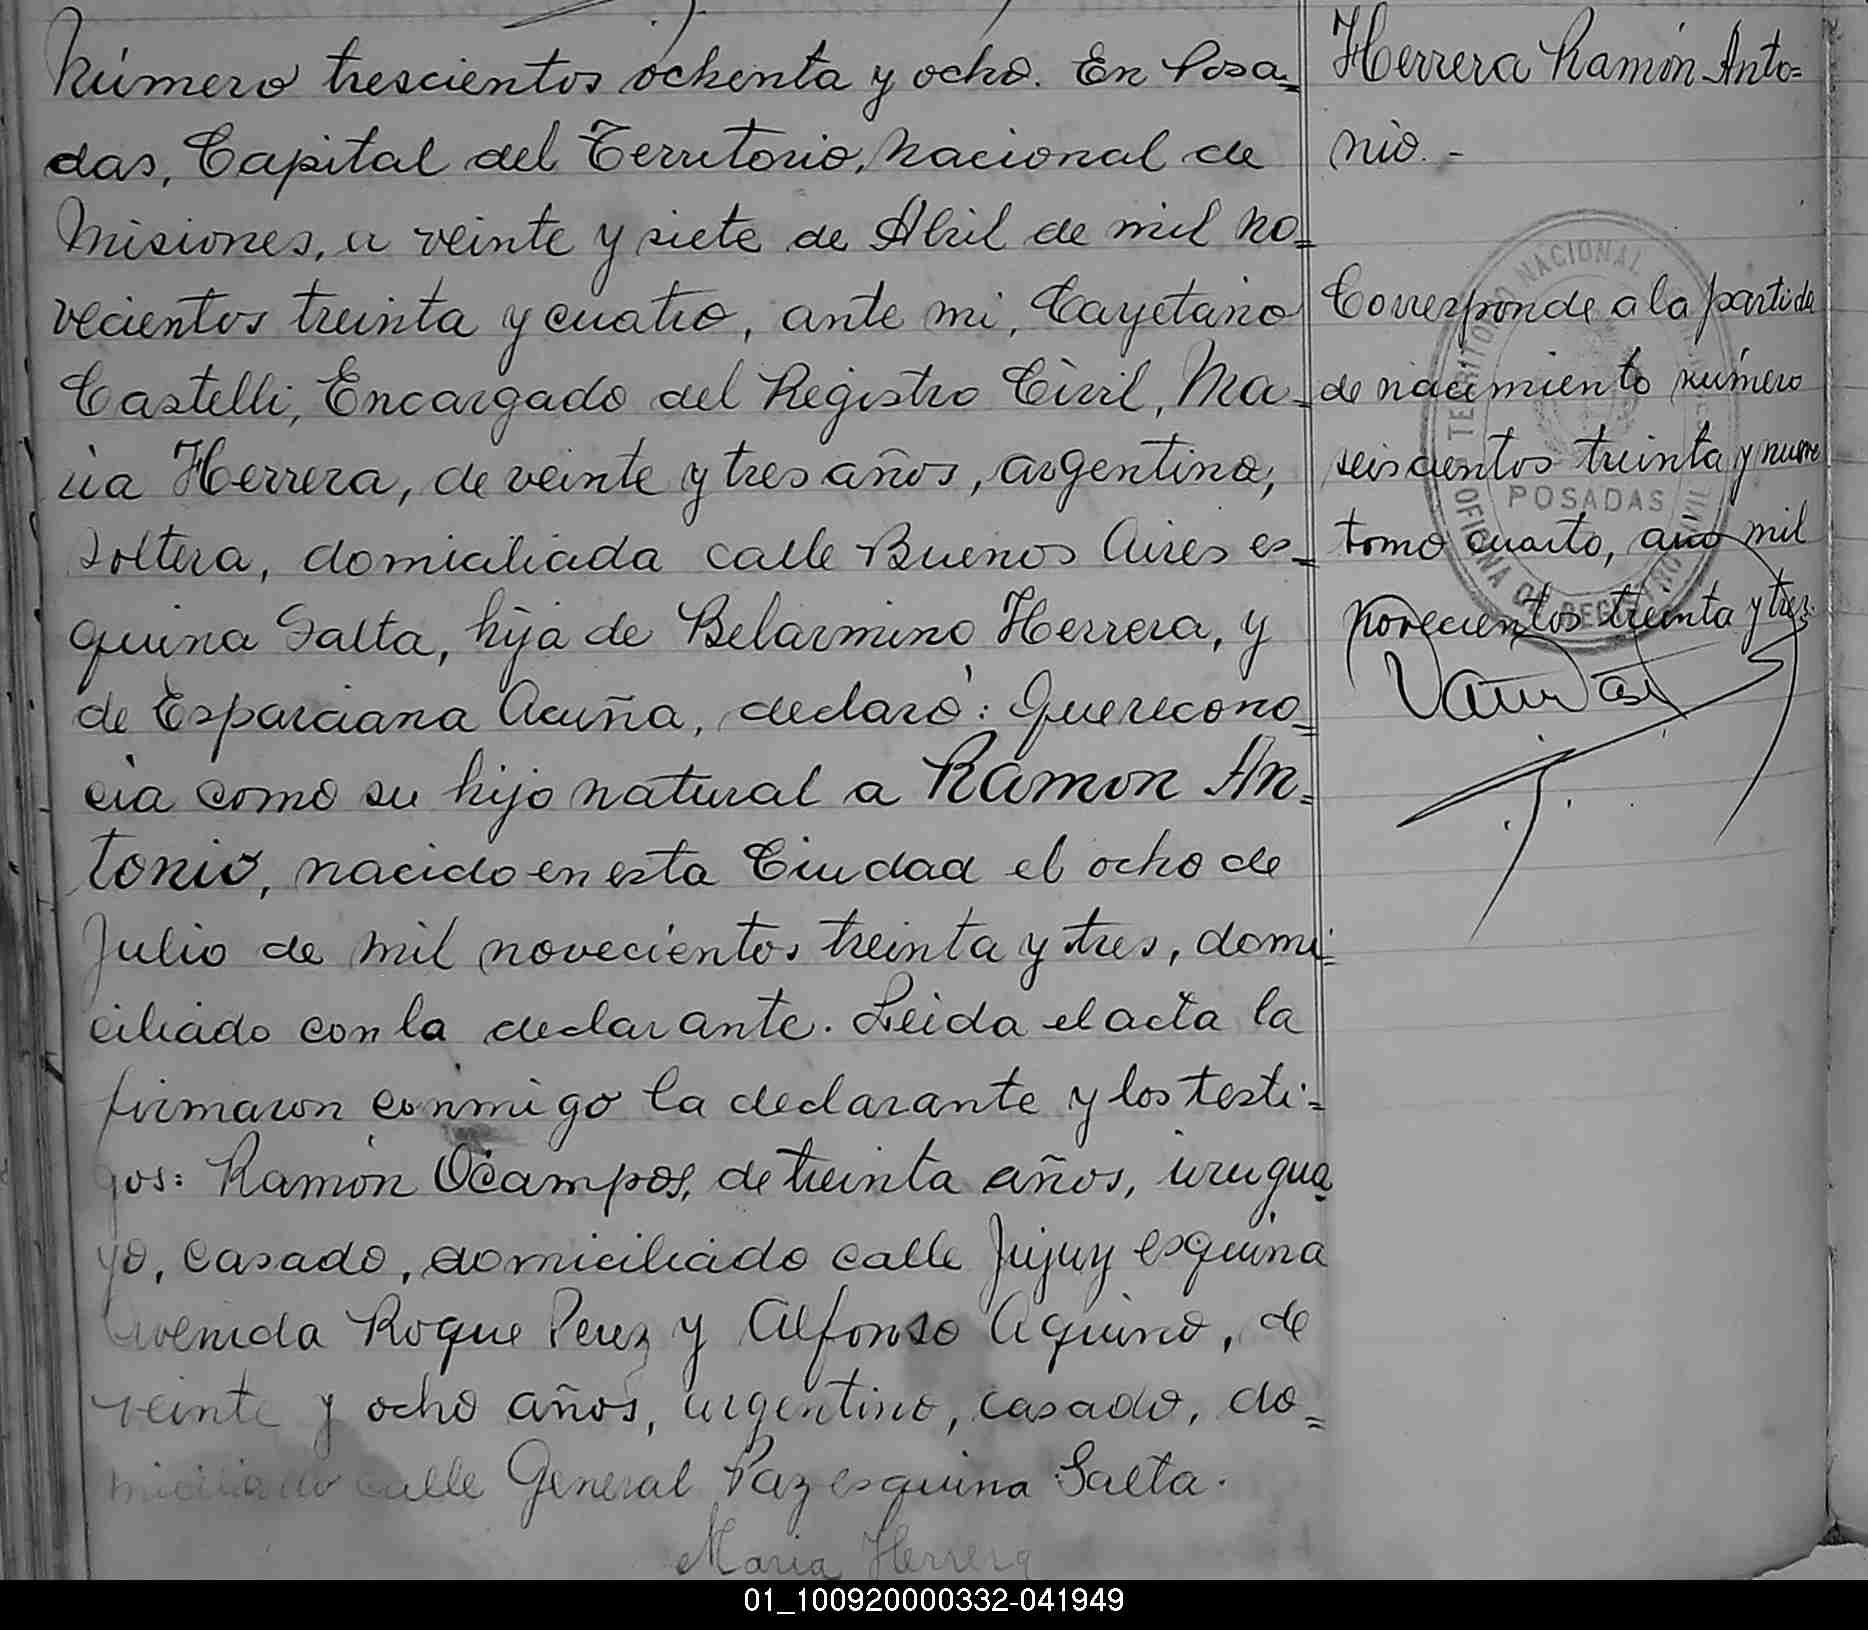 Número trescientos ochenta y ocho. En Posa=
das, Capital del Territorio, Nacional de
Misiones, a veinte y siete de Abril de mil no=
vecientos treinta y cuatro, ante mi, Cayetano
Castelli, Encargado del Registro Civil, Ma=
ria Herrera, de veinte y tres años, argentina,
soltera, domiciliada calle Buenos Aires es=
quina Salta, hija de Belarmino Herrera, y
de Esparciana Acuña, declaró: Que recono=
cia como su hijo natural a Ramon An=
tonio, nacido en esta Ciudad el ocho de
Julio de mil novecientos treinta y tres, domi=
ciliado con la declarante. Leida el acta la
firmaron conmigo la declarante y los testi=
gos: Ramón Ocampos, de treinta años, urugua
yo, casado, domiciliado calle Jujuy esquina
Avenida Roque Perez y Alfonso Aquino, de
veinte y ocho años, argentino, casado, do=
miciliado calle General Paz esquina Salta.
Maria Herrera
Herrera Ramón Anto=
nio. -
Corresponde a la partida
de nacimiento número
seiscientos treinta y nueve
tomo cuarto, año mil
novecientos treinta y tres.
TERRITORIO NACIONAL
POSADAS
OFICINA DE REGISTRO CIVIL
01_100920000332-041949